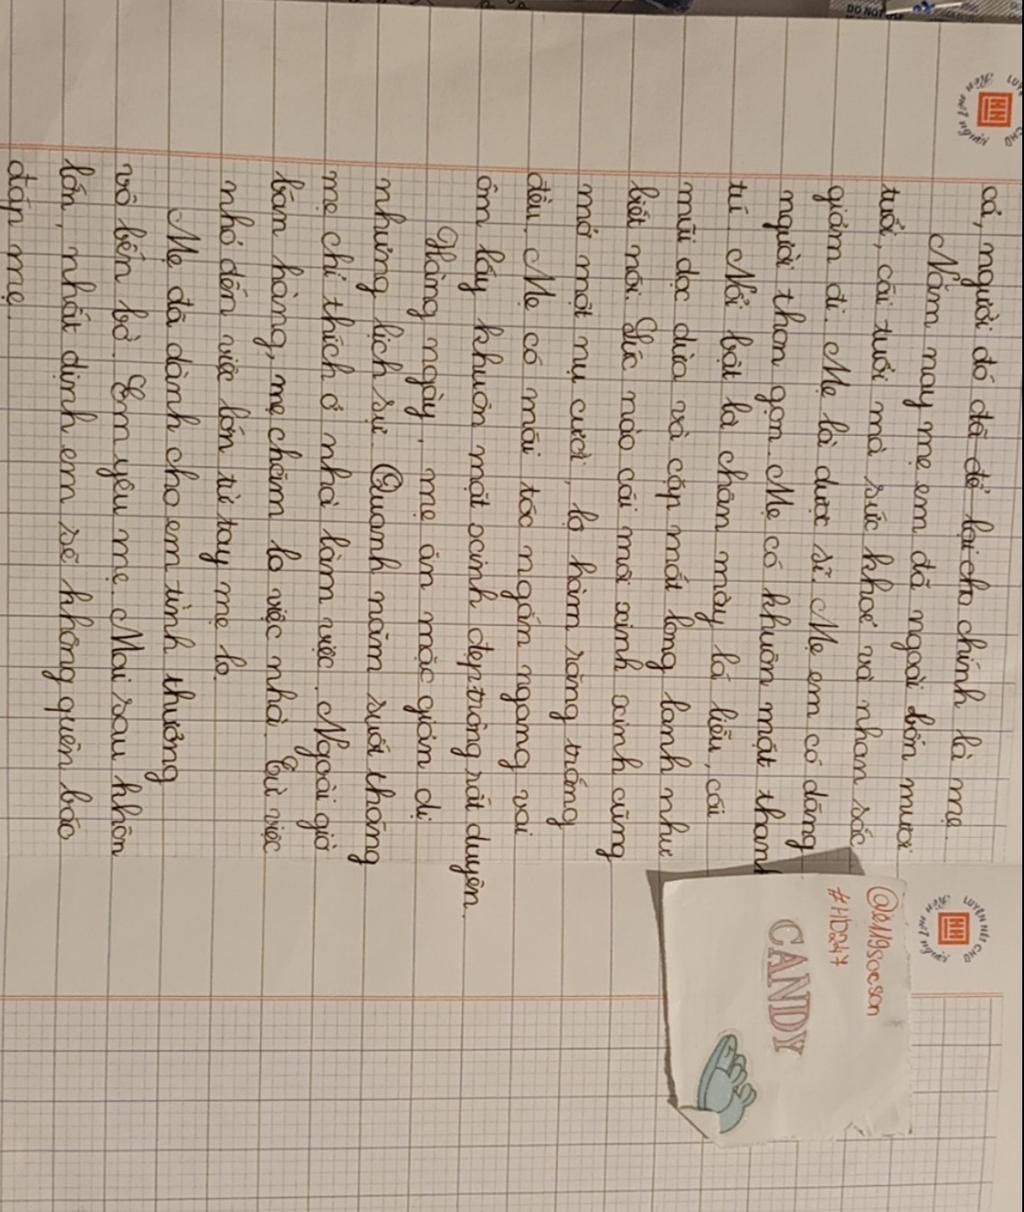 cả, người đó đã để lại cho chính là mẹ.
Năm nay mẹ em đã ngoài bốn mươi
tuổi, cái tuổi mà sức khoẻ và nhan sắc
giảm đi. Mẹ là dược sĩ. Mẹ em có dáng
người thon gọn. Mẹ có khuôn mặt thanh
tú. Nổi bật là chân mày lá liễu, cái
mũi dọc dừa và cặp mắt long lanh như
biết nói. Lúc nào cái môi xinh xinh cũng
mở một nụ cười, lộ hàm răng trắng
đều. Mẹ có mái tóc ngắn ngang vai
ôm lấy khuôn mặt xinh đẹp trông rất duyên.
Hàng ngày, mẹ ăn mặc giản dị
nhưng lịch sự. Quanh năm suốt tháng
mẹ chỉ thích ở nhà làm việc. Ngoài giờ
bán hàng, mẹ chăm lo việc nhà. Từ việc
nhỏ đến việc lớn từ tay mẹ lo.
Mẹ đã dành cho em tình thương
vô bến bờ. Em yêu mẹ. Mai sau khôn
lớn, nhất định em sẽ không quên báo
đáp mẹ.
LUYỆN NÉT CHỮ
HH
NẾT NGƯỜI
#HD247
CANDY
DO NOT